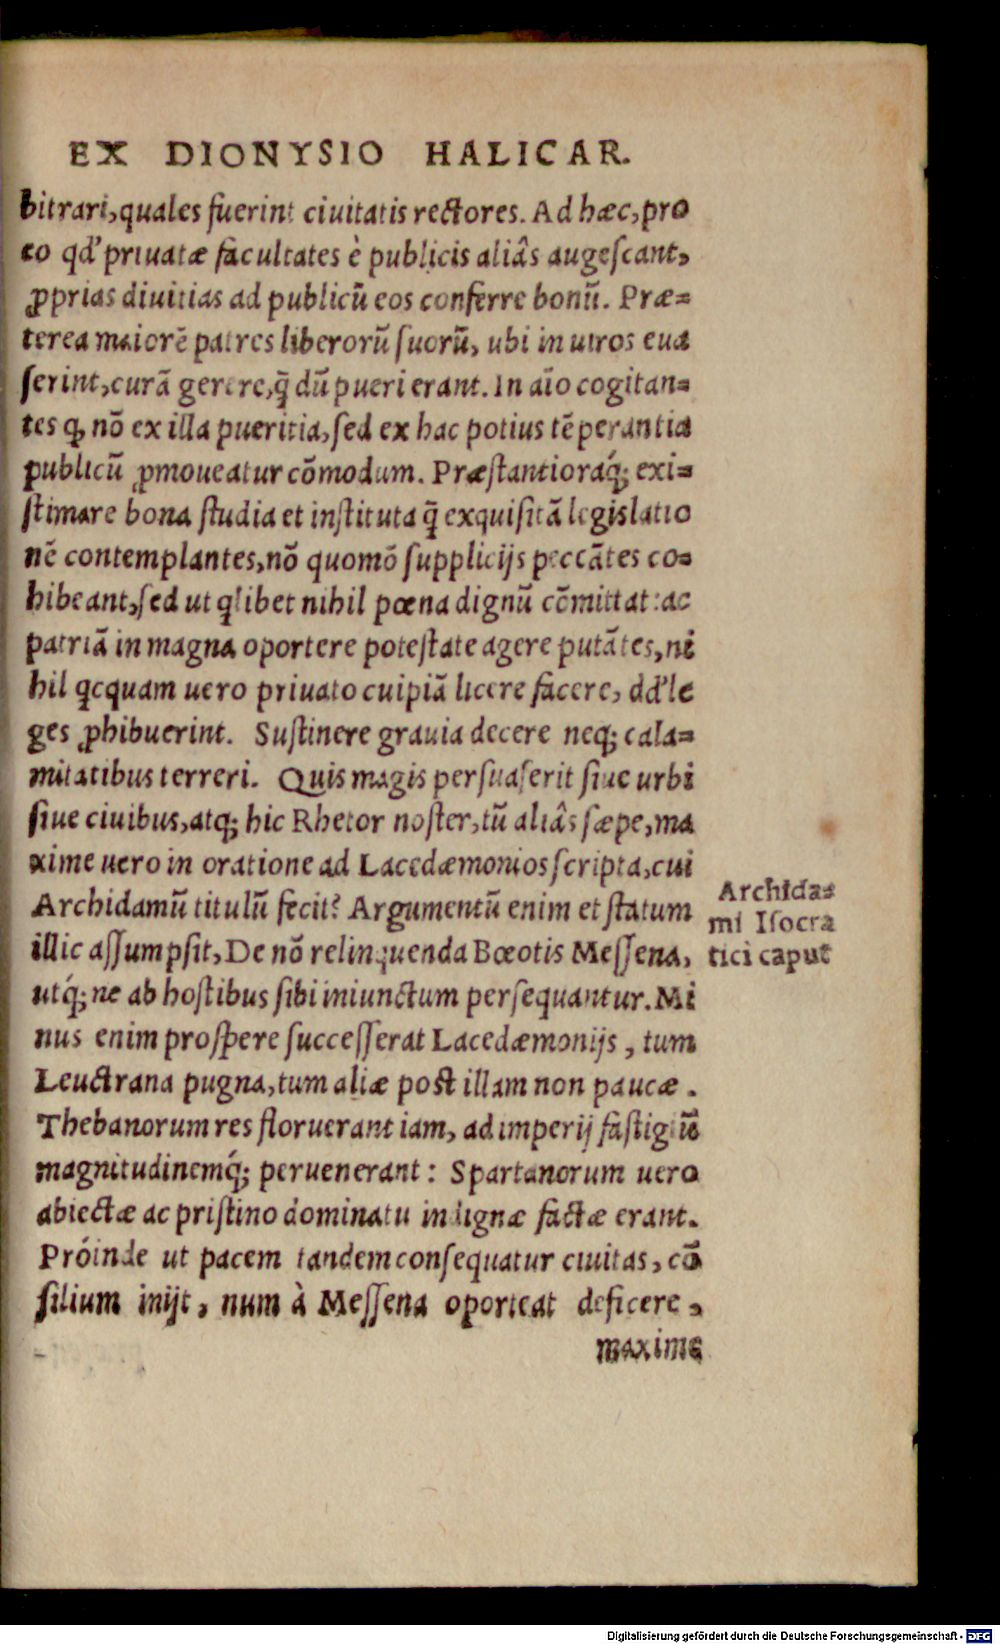 EX DIONYSIO HALICAR.
bitrari, quales fuerint ciuitatis rectores. Ad hæc, pro
eo qd' priuatæ facultates è publicis aliâs augescant,
ꝓprias diuitias ad publicũ eos conferre bonũ. Præ=
terea maiorẽ patres liberorũ suorũ, ubi in uiros eua
serint, curã gerere, q̃ dũ pueri erant. In aĩo cogitan=
tes ꝙ nõ ex illa pueritia, sed ex hac potius tẽperantia
publicũ ꝓmoueatur cõmodum. Præstantioraq́; exi=
stimare bona studia et instituta q̃ exquisitã legislatio
nẽ contemplantes, nõ quomõ supplicijs peccãtes co=
hibeant, sed ut qlibet nihil pœna dignũ cõmittat: ac
patriã in magna oportere potestate agere putãtes, ni
hil qcquam uero priuato cuipiã licere facere, dd' le
ges ꝓhibuerint. Sustinere grauia decere neq; cala=
mitatibus terreri. Quis magis persuaserit siue urbi
siue ciuibus, atq; hic Rhetor noster, tũ aliâs sæpe, ma
xime uero in oratione ad Lacedæmonios scripta, cui
Archidamũ titulũ fecit? Argumentũ enim et statum
illic assumpsit, De nõ relinquenda Bœotis Messena,
utq́; ne ab hostibus sibi iniunctum persequantur. Mi
nus enim prospere successerat Lacedæmonijs, tum
Leuctrana pugna, tum aliæ post illam non paucæ.
Thebanorum res floruerant iam, ad imperij fastigiũ
magnitudinemq́; peruenerant: Spartanorum uero
abiectæ ac pristino dominatu indignæ factæ erant.
Próinde ut pacem tandem consequatur ciuitas, cõ
silium inijt, num à Messena oporteat deficere,
maxime
Archida=
mi Isocra
tici caput
Digitalisierung gefördert durch die Deutsche Forschungsgemeinschaft - DFG